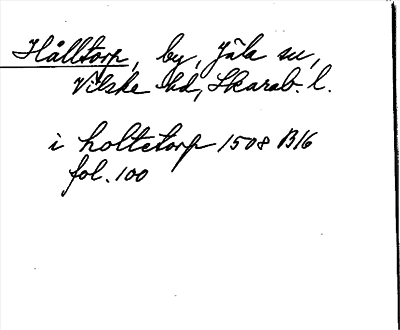 Hålltorp, by, Jäla sn,
Vilske hd, Skarab. l.
i holtetorp 1508 B16
fol. 100